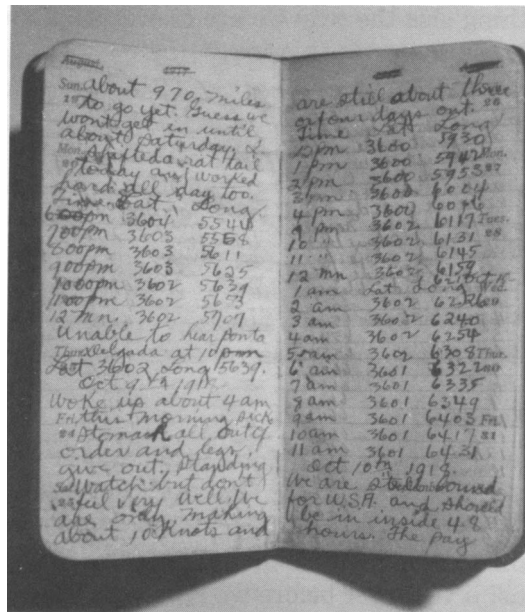 August
Sun. about 970 miles
to go yet. Guess we
wont get in until
about Saturday.
Mon.
today and worked
hard all day too.
Time Lat Long
600pm 3604 5544
700pm 3603 5558
800pm 3603 5611
900pm 3603 5625
1000pm 3602 5639
1100pm 3602 5653
12 mn. 3602 5709
Unable to hear Ponta
Thur. Delgada at 10 pm
Lat 3602 Long 5639.
Oct 9th 1918
Woke up about 4 am
Fri. this morning sick
Stomach all out of
order and legs
give out. Standing
watch but don't
feel very well. We
are only making
about 10 Knots and
are still about three
or four days out.
Time Lat Long
12 pm 3600 5930
1 pm 3600 5942 Mon.
2 pm 3600 5953 27
3 pm 3600 6004
4 pm 3600
9 pm 3602 6117 Tues.
10 " 3602 6131 28
11 " 3602 6145
12 mn 3602 6159
1 am Lat Long Wed.
2 am 3602
3 am 3602 6240
4 am 3602 6254
5 am 3602 6308 Thur.
6 am 3601 6322
7 am 3601 6335
8 am 3601 6349
9 am 3601 6403 Fri.
10 am 3601 6417
11 am 3601 6431
Oct 10th 1918.
We are still bound
for U.S.A. and should
be in inside 48
hours. The pay